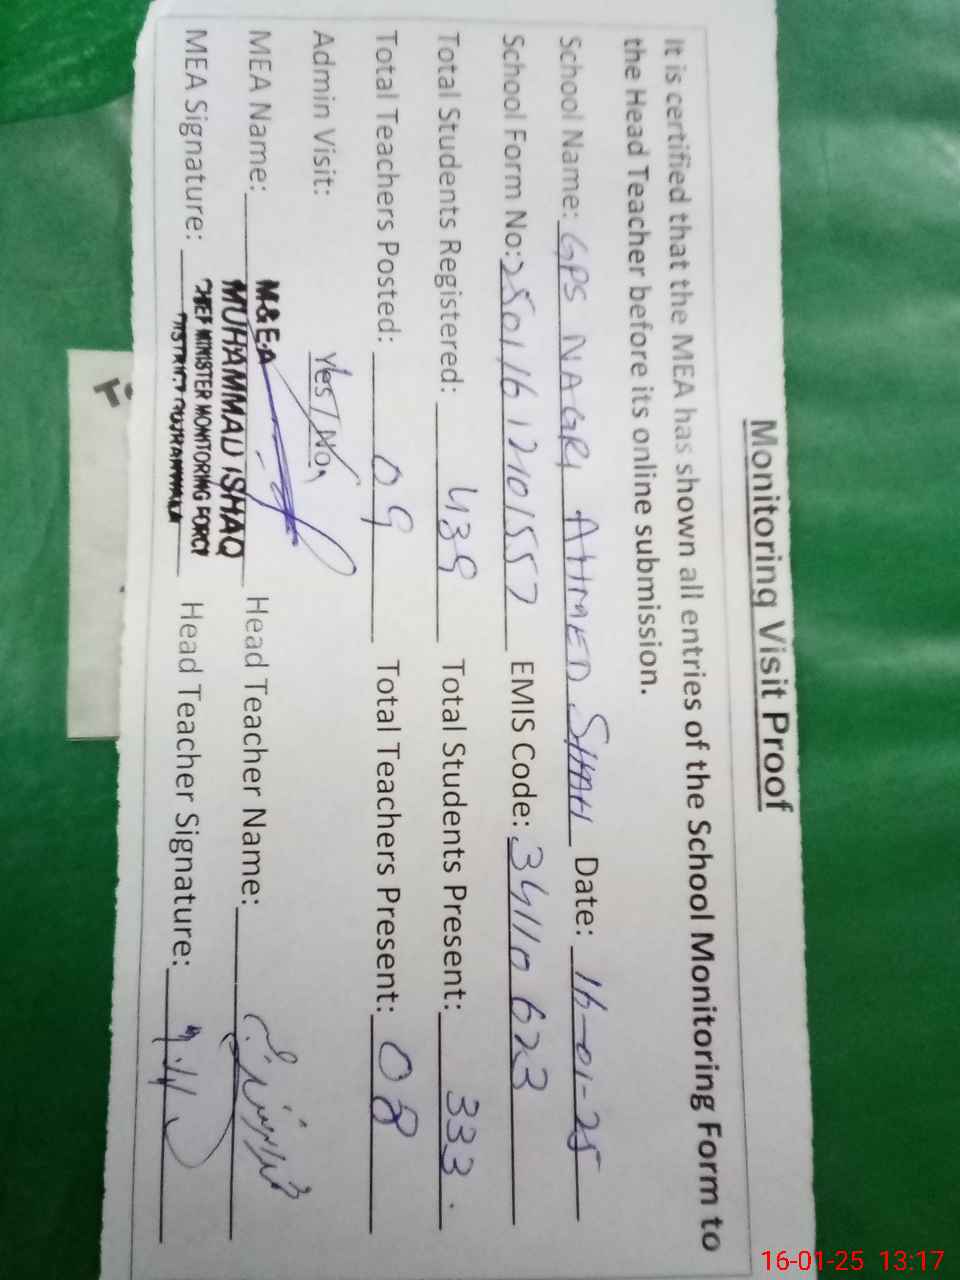 Monitoring Visit Proof
It is certified that the MEA has shown all entries of the School Monitoring Form to
the Head Teacher before its online submission.
School Name: GPS NAGRI AHMED SHAH Date: 16-01-25
School Form No: 2501161210157 EMIS Code: 34110623
Total Students Registered: 439 Total Students Present: 333.
Total Teachers Posted: 09 Total Teachers Present: 08
Admin Visit: Yes / No
MEA Name: M&EA MUHAMMAD ISHAQ Head Teacher Name:
MEA Signature: CHIEF MINISTER MONITORING FORCE Head Teacher Signature:
DISTRICT GUJRANWALA
16-01-25 13:17